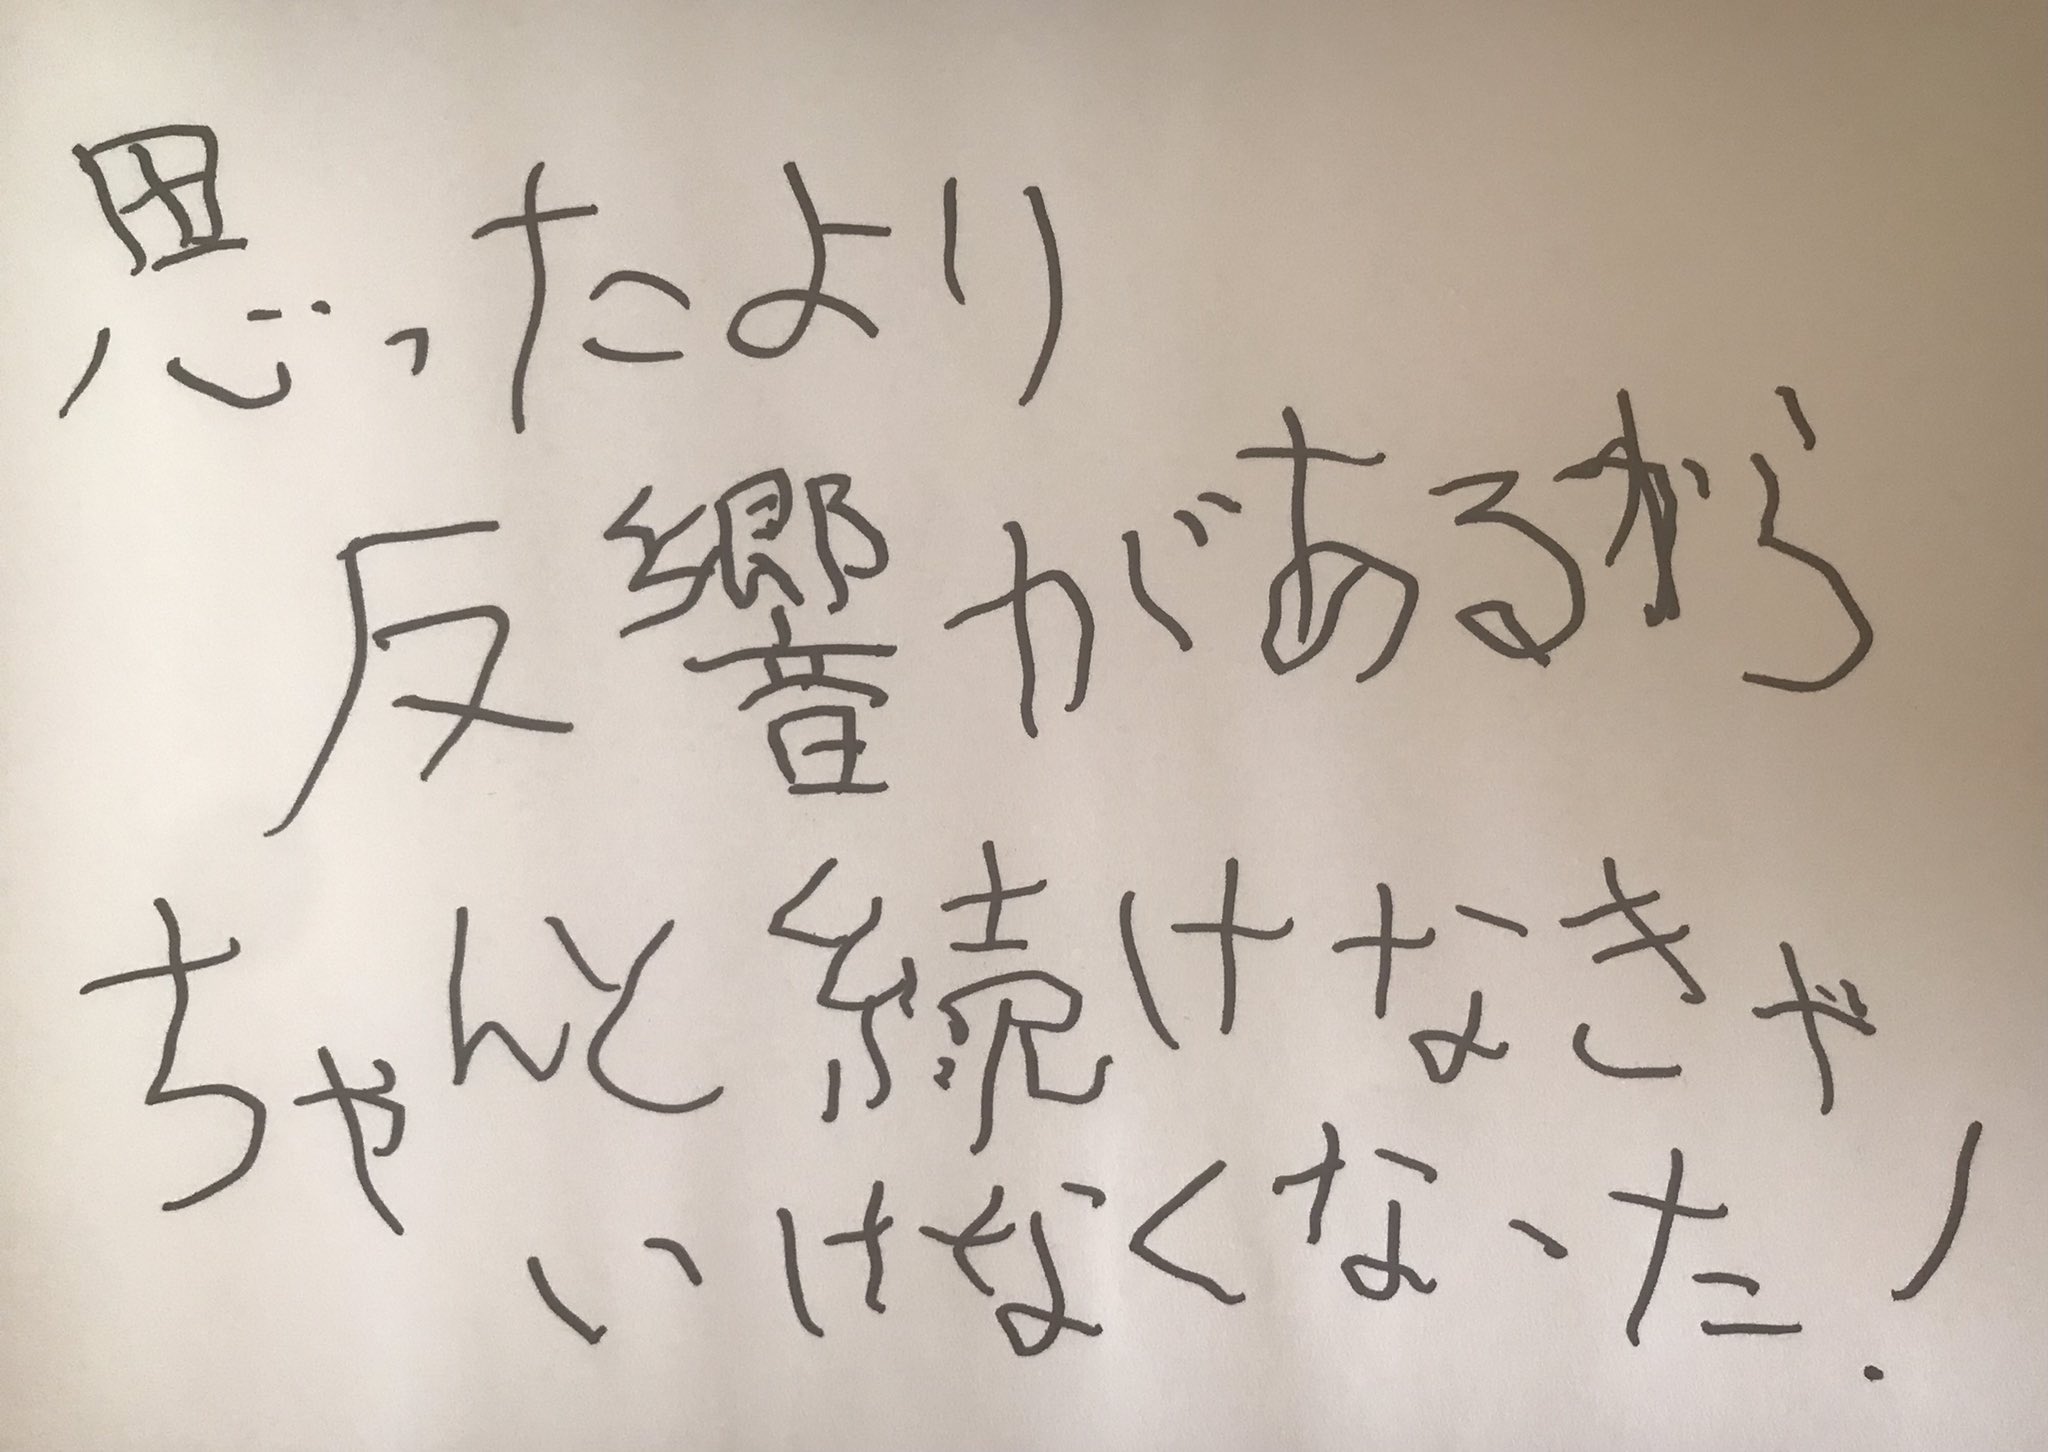 思ったより
反響があるから
ちゃんと続けなきゃ
いけなくなった!